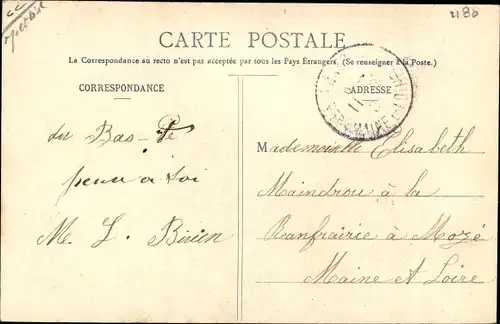 4180
CARTE POSTALE
La Correspondance au recto n'est pas acceptée par tous les Pays Étrangers. (Se renseigner à la Poste.)
CORRESPONDANCE
ADRESSE
du Bas-
à toi
M. L.
Mademoiselle Elisabeth
Maindrou à la
Ranfrairie à Mozé
Maine et Loire